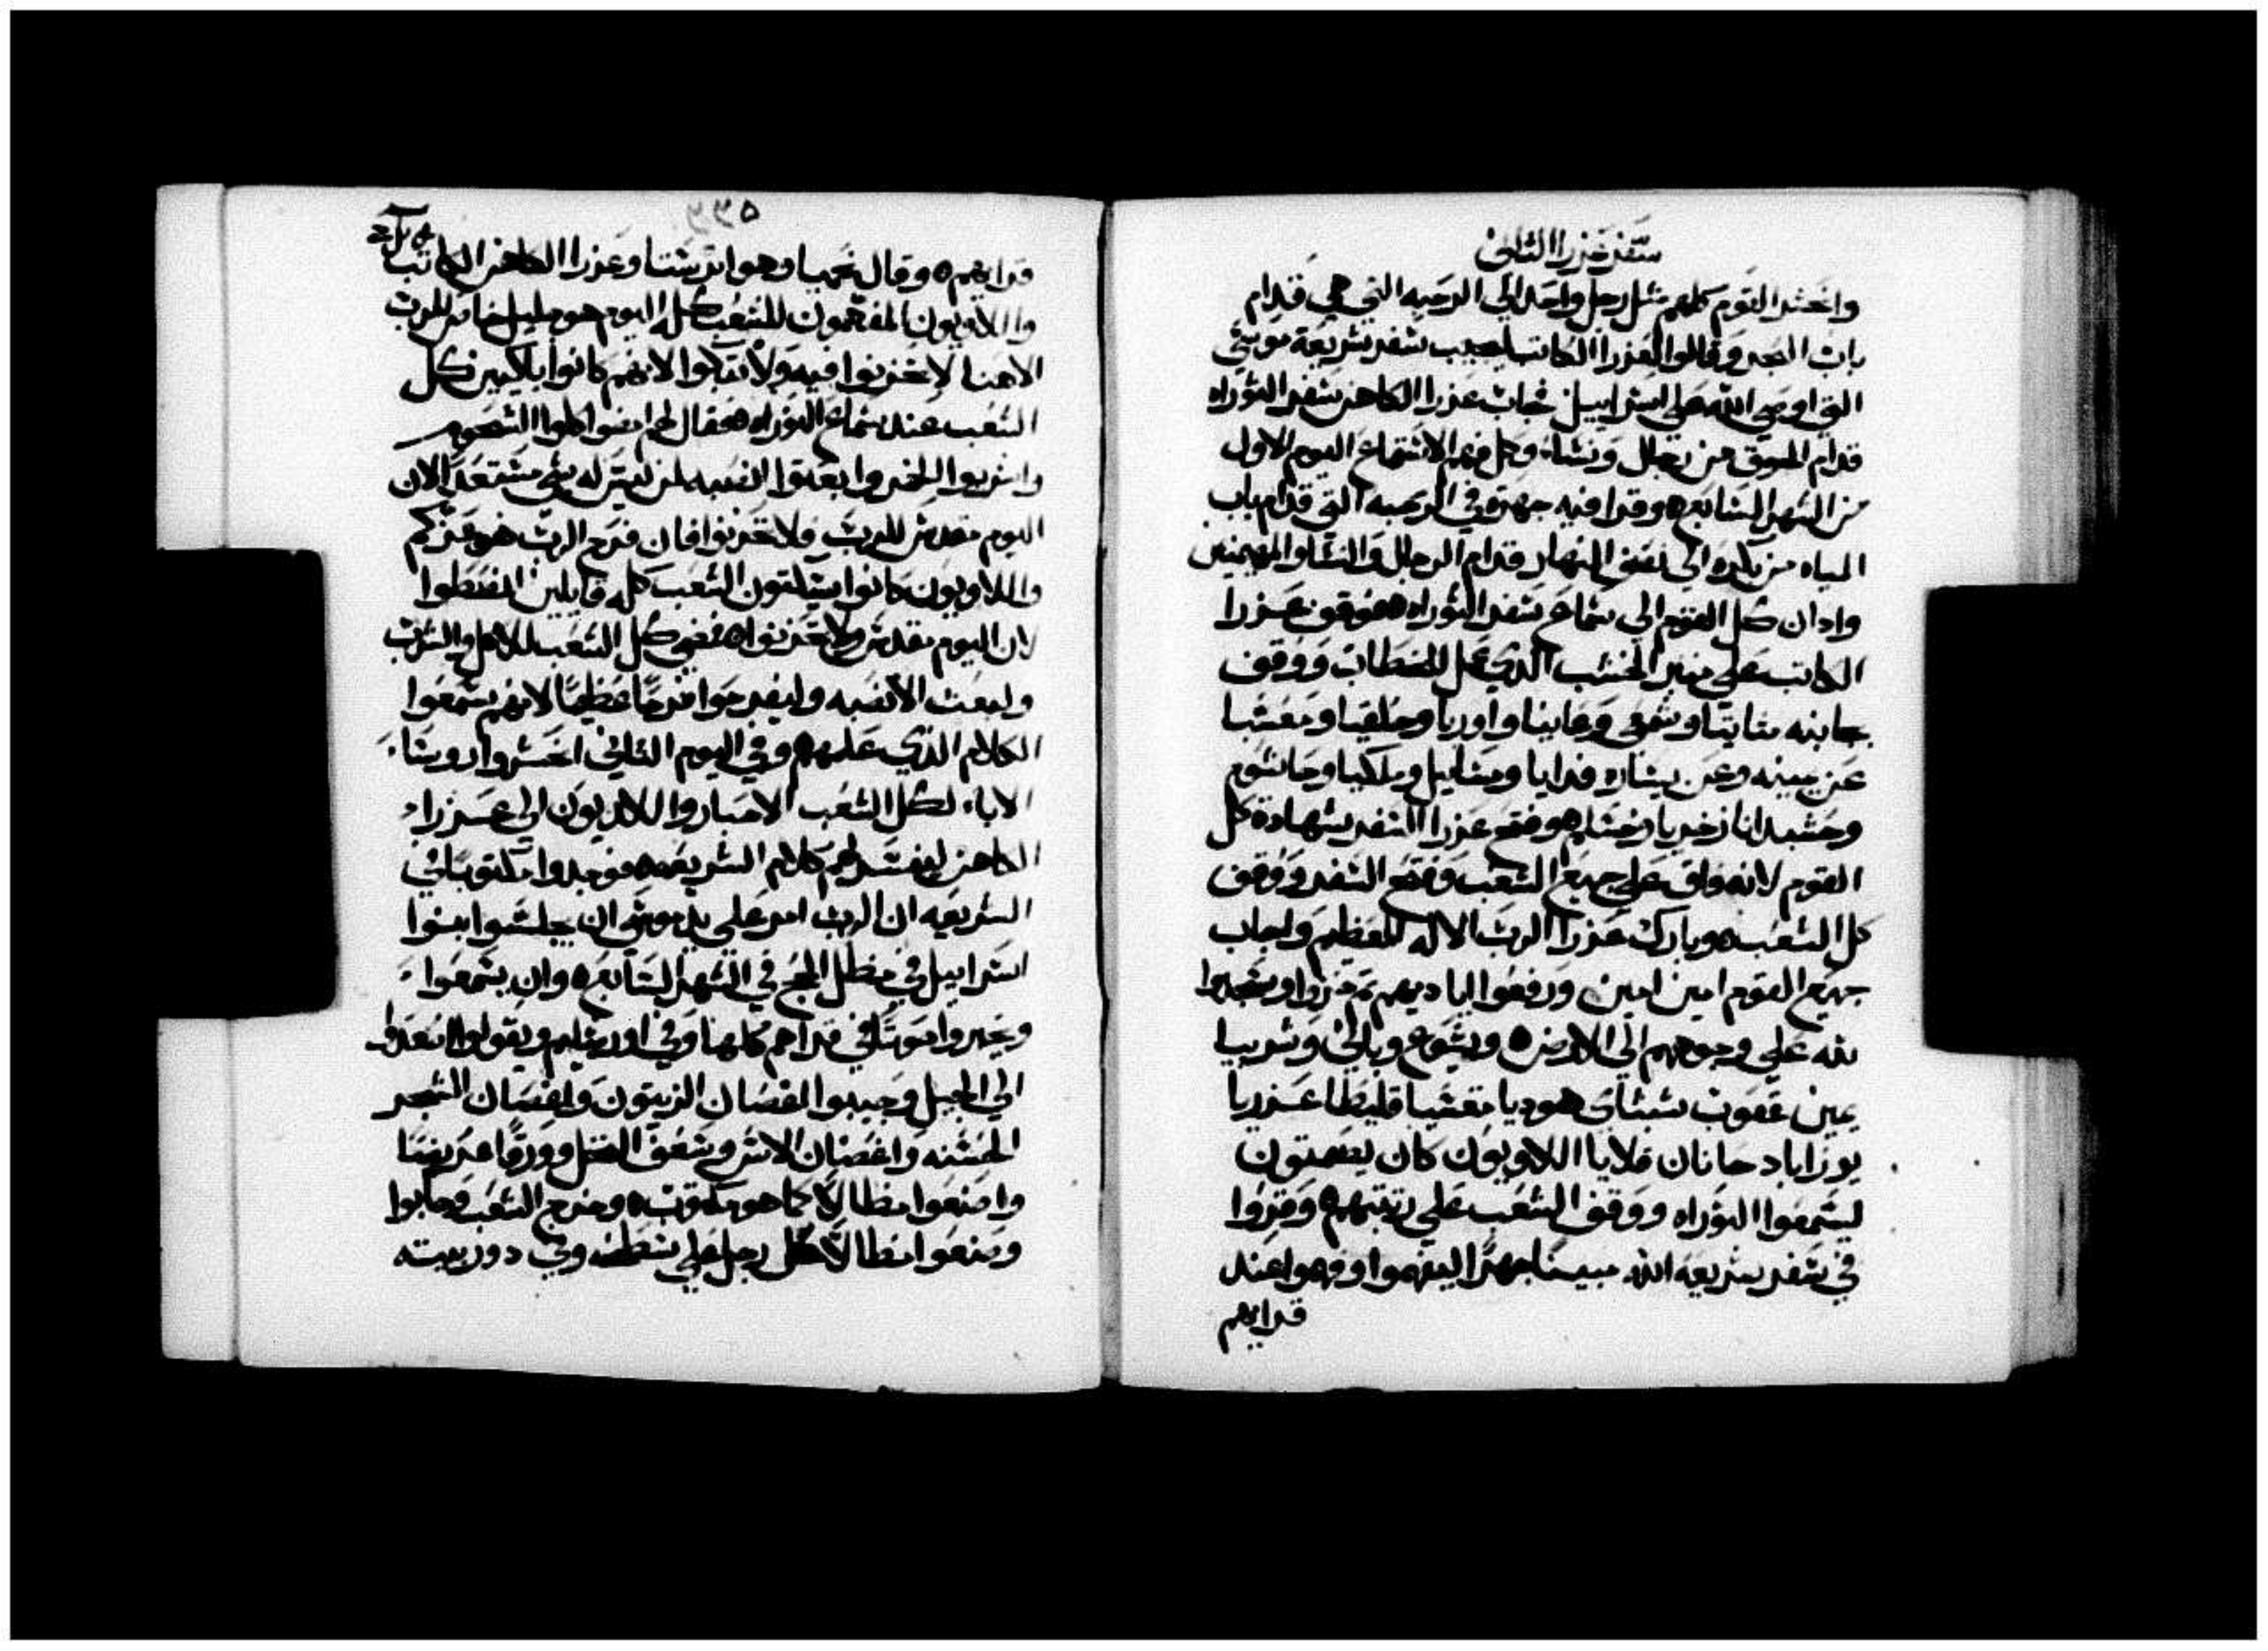 سفر عزرا الثاني
وانحشر القوم كلهم مثل رجل واحد الي الرحبه التي هي قدام
باب البحر وقالوا لعزرا الكاتب ليجيب سفر شريعة موسي
التي اوصي الله علي اسراييل فجاب عزرا الكاهن سفر التوراه
قدام الجوق من رجال ونساء وكل فهم الاستماع اليوم الاول
من الشهر السابع ٥ وقرا فيه جهرة في الرحبه التي قدام باب
المياه من بكره الي نصف النهار قدام الرجال والنسا والمفهمين
واذان كل القوم الي سماع سفر التوراه ٥ فوقف عزرا
الكاتب علي منبر الخشب الذي عمل للخطاب ووقف
بجانبه متاتيا وشمع وعانيا واوريا وحلقيا ومعسيا
عن يمينه وعن يساره فدايا وميسايل وملكيا وحاشوم
وحشبدانا زخريا ومشلم ٥ وفتح عزرا السفر بشهادة كل
القوم لانه فاق علي جميع الشعب وفتح السفر ووقف
كل الشعب ٥ وبارك عزرا الرب الاله العظيم واجاب
جميع القوم امين امين ورفعوا اياديهم ثم خروا وسجدوا
لله علي وجوههم الي الارض ٥ ويشوع وباني وشربيا
يمين عقوب شبتاي هوديا معسيا قليطا عزريا
يوزاباد حانان فلايا اللاويون كان يصمتون
ليسمعوا التوراه ووقف الشعب علي رتبتهم ٥ وقروا
في سفر شريعة الله مبينا جهرا ليفهموا وفهموا عند
قرايهم
قرايهم ٥ وقال نحميا وهو اترشتا وعزرا الكاهن الكاتب
واللاويون المفهمون للشعب كله اليوم هو جليل خاص للرب
الاهنا لا تحزنوا فيه ولا تبكوا لانهم كانوا باكيين كل
الشعب عند سماع التوراه ٥ فقال لهم امضوا كلوا الشحوم
واشربوا الخمر وابعتوا انصبه لمن ليس له شي مستعد الان
اليوم مقدس للرب ولا تحزنوا فان فرح الرب هو عزكم
واللاويون كانوا يسكتون الشعب كله قايلين انضبطوا
لان اليوم مقدس ولا تحزنوا ٥ فمضي كل الشعب للاكل والشرب
ولبعث الانصبه وليفرحوا فرحا عظيما لانهم سمعوا
الكلام الذي علمهم ٥ وفي اليوم الثاني انحشروا روسا
الاباء لكل الشعب الاحبار واللاويون الي عزرا
الكاهن ليفسر لهم كلام الشريعه ٥ فوجدوا مكتوبا في
الشريعه ان الرب امر علي يد موسي ان يجلسوا بنوا
اسراييل في مظال الحج في الشهر السابع ٥ وان يسمعوا
ويعبروا صوتا في قراهم كلها وفي اورشليم ويقولوا اصعدوا
الي الجبل وجيبوا اغصان الزيتون واغصان الشجر
الحسنه واغصان الاس وسعف النخل وورقا عريضا
واصنعوا مظالا كما هو مكتوب ٥ وخرج الشعب وجابوا
وصنعوا مظالا كل رجل علي سطحه وفي دور بيته